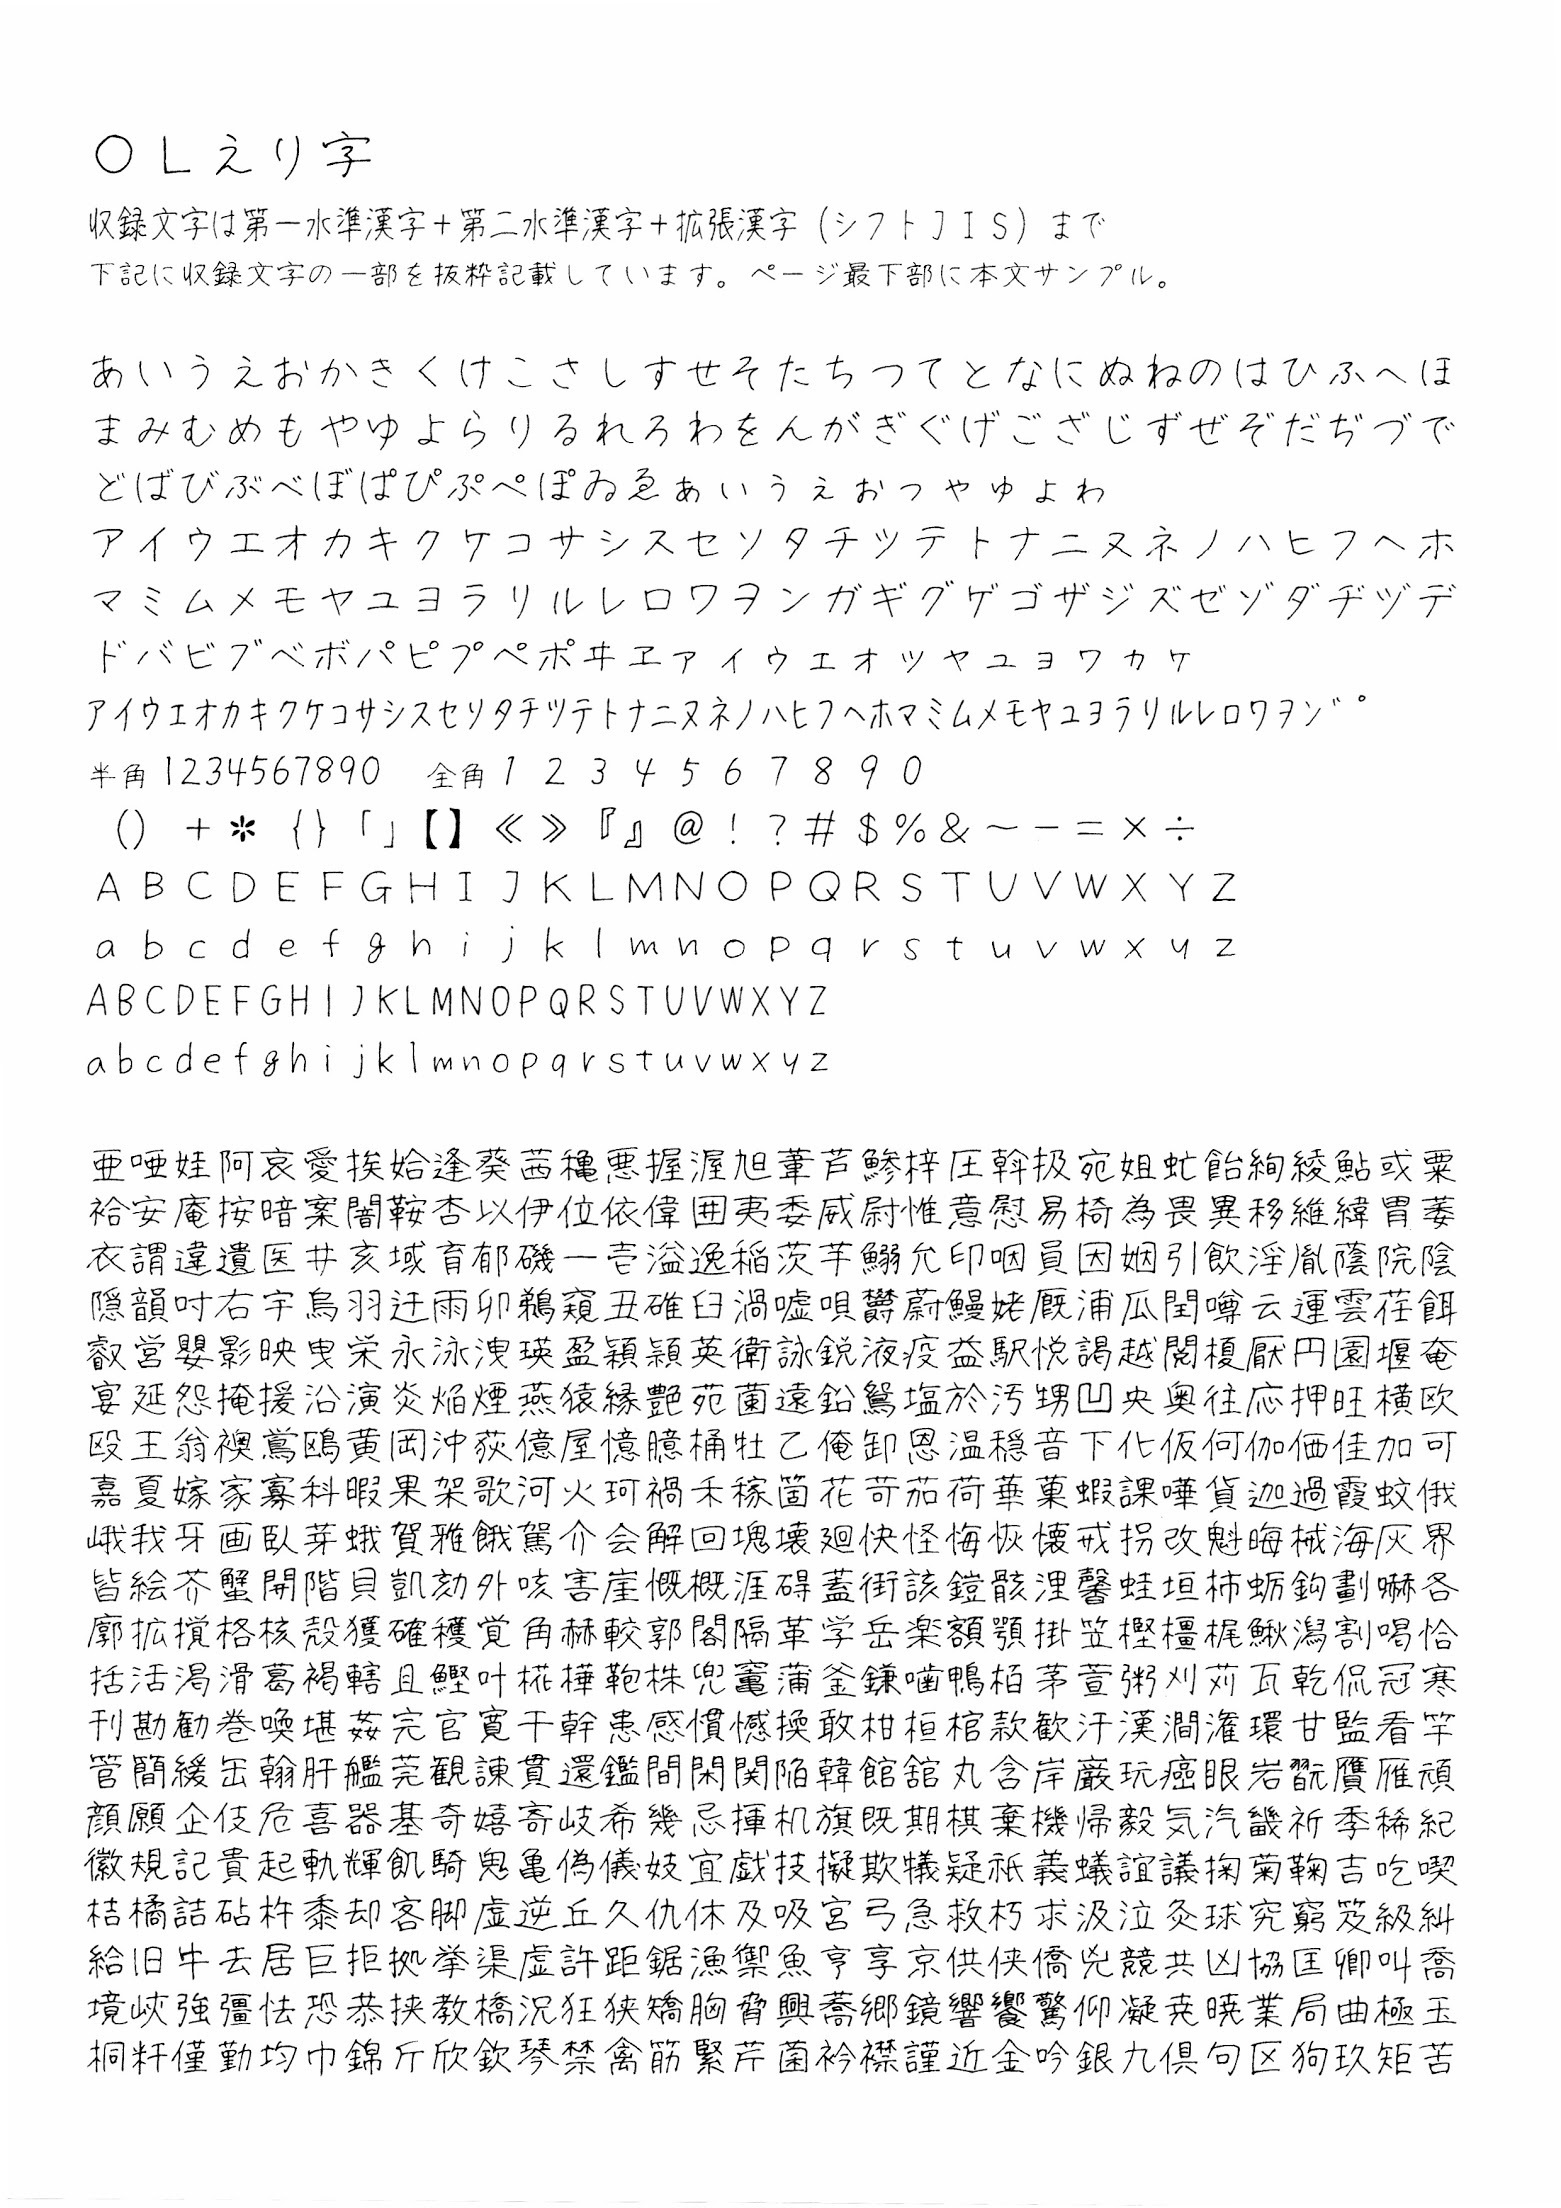 ＯＬえり字
収録文字は第一水準漢字＋第二水準漢字＋拡張漢字（シフトＪＩＳ）まで
下記に収録文字の一部を抜粋記載しています。ページ最下部に本文サンプル。
あいうえおかきくけこさしすせそたちつてとなにぬねのはひふへほ
まみむめもやゆよらりるれろわをんがぎぐげござじずぜぞだぢづで
どばびぶべぼぱぴぷぺぽゐゑぁぃぅぇぉっゃゅょゎ
アイウエオカキクケコサシスセソタチツテトナニヌネノハヒフヘホ
マミムメモヤユヨラリルレロワヲンガギグゲゴザジズゼゾダヂヅデ
ドバビブベボパピプペポヰヱァィゥェォッャュョヮヵヶ
ｱｲｳｴｵｶｷｸｹｺｻｼｽｾｿﾀﾁﾂﾃﾄﾅﾆﾇﾈﾉﾊﾋﾌﾍﾎﾏﾐﾑﾒﾓﾔﾕﾖﾗﾘﾙﾚﾛﾜｦﾝﾞﾟ
半角1234567890　全角１２３４５６７８９０
（）＋＊｛｝「」【】≪≫『』＠！？＃＄％＆～－＝×÷
ＡＢＣＤＥＦＧＨＩＪＫＬＭＮＯＰＱＲＳＴＵＶＷＸＹＺ
ａｂｃｄｅｆｇｈｉｊｋｌｍｎｏｐｑｒｓｔｕｖｗｘｙｚ
ABCDEFGHIJKLMNOPQRSTUVWXYZ
abcdefghijklmnopqrstuvwxyz
亜唖娃阿哀愛挨姶逢葵茜穐悪握渥旭葦芦鯵梓圧斡扱宛姐虻飴絢綾鮎或粟
袷安庵按暗案闇鞍杏以伊位依偉囲夷委威尉惟意慰易椅為畏異移維緯胃萎
衣謂違遺医井亥域育郁磯一壱溢逸稲茨芋鰯允印咽員因姻引飲淫胤蔭院陰
隠韻吋右宇烏羽迂雨卯鵜窺丑碓臼渦嘘唄欝蔚鰻姥厩浦瓜閏噂云運雲荏餌
叡営嬰影映曳栄永泳洩瑛盈穎頴英衛詠鋭液疫益駅悦謁越閲榎厭円園堰奄
宴延怨掩援沿演炎焔煙燕猿縁艶苑薗遠鉛鴛塩於汚甥凹央奥往応押旺横欧
殴王翁襖鴬鴎黄岡沖荻億屋憶臆桶牡乙俺卸恩温穏音下化仮何伽価佳加可
嘉夏嫁家寡科暇果架歌河火珂禍禾稼箇花苛茄荷華菓蝦課嘩貨迦過霞蚊俄
峨我牙画臥芽蛾賀雅餓駕介会解回塊壊廻快怪悔恢懐戒拐改魁晦械海灰界
皆絵芥蟹開階貝凱劾外咳害崖慨概涯碍蓋街該鎧骸浬馨蛙垣柿蛎鈎劃嚇各
廓拡撹格核殻獲確穫覚角赫較郭閣隔革学岳楽額顎掛笠樫橿梶鰍潟割喝恰
括活渇滑葛褐轄且鰹叶椛樺鞄株兜竃蒲釜鎌噛鴨栢茅萱粥刈苅瓦乾侃冠寒
刊勘勧巻喚堪姦完官寛干幹患感慣憾換敢柑桓棺款歓汗漢澗潅環甘監看竿
管簡緩缶翰肝艦莞観諌貫還鑑間閑関陥韓館舘丸含岸巌玩癌眼岩翫贋雁頑
顔願企伎危喜器基奇嬉寄岐希幾忌揮机旗既期棋棄機帰毅気汽畿祈季稀紀
徽規記貴起軌輝飢騎鬼亀偽儀妓宜戯技擬欺犠疑祇義蟻誼議掬菊鞠吉吃喫
桔橘詰砧杵黍却客脚虐逆丘久仇休及吸宮弓急救朽求汲泣灸球究窮笈級糾
給旧牛去居巨拒拠挙渠虚許距鋸漁禦魚亨享京供侠僑兇競共凶協匡卿叫喬
境峡強彊怯恐恭挟教橋況狂狭矯胸脅興蕎郷鏡響饗驚仰凝尭暁業局曲極玉
桐粁僅勤均巾錦斤欣欽琴禁禽筋緊芹菌衿襟謹近金吟銀九倶句区狗玖矩苦